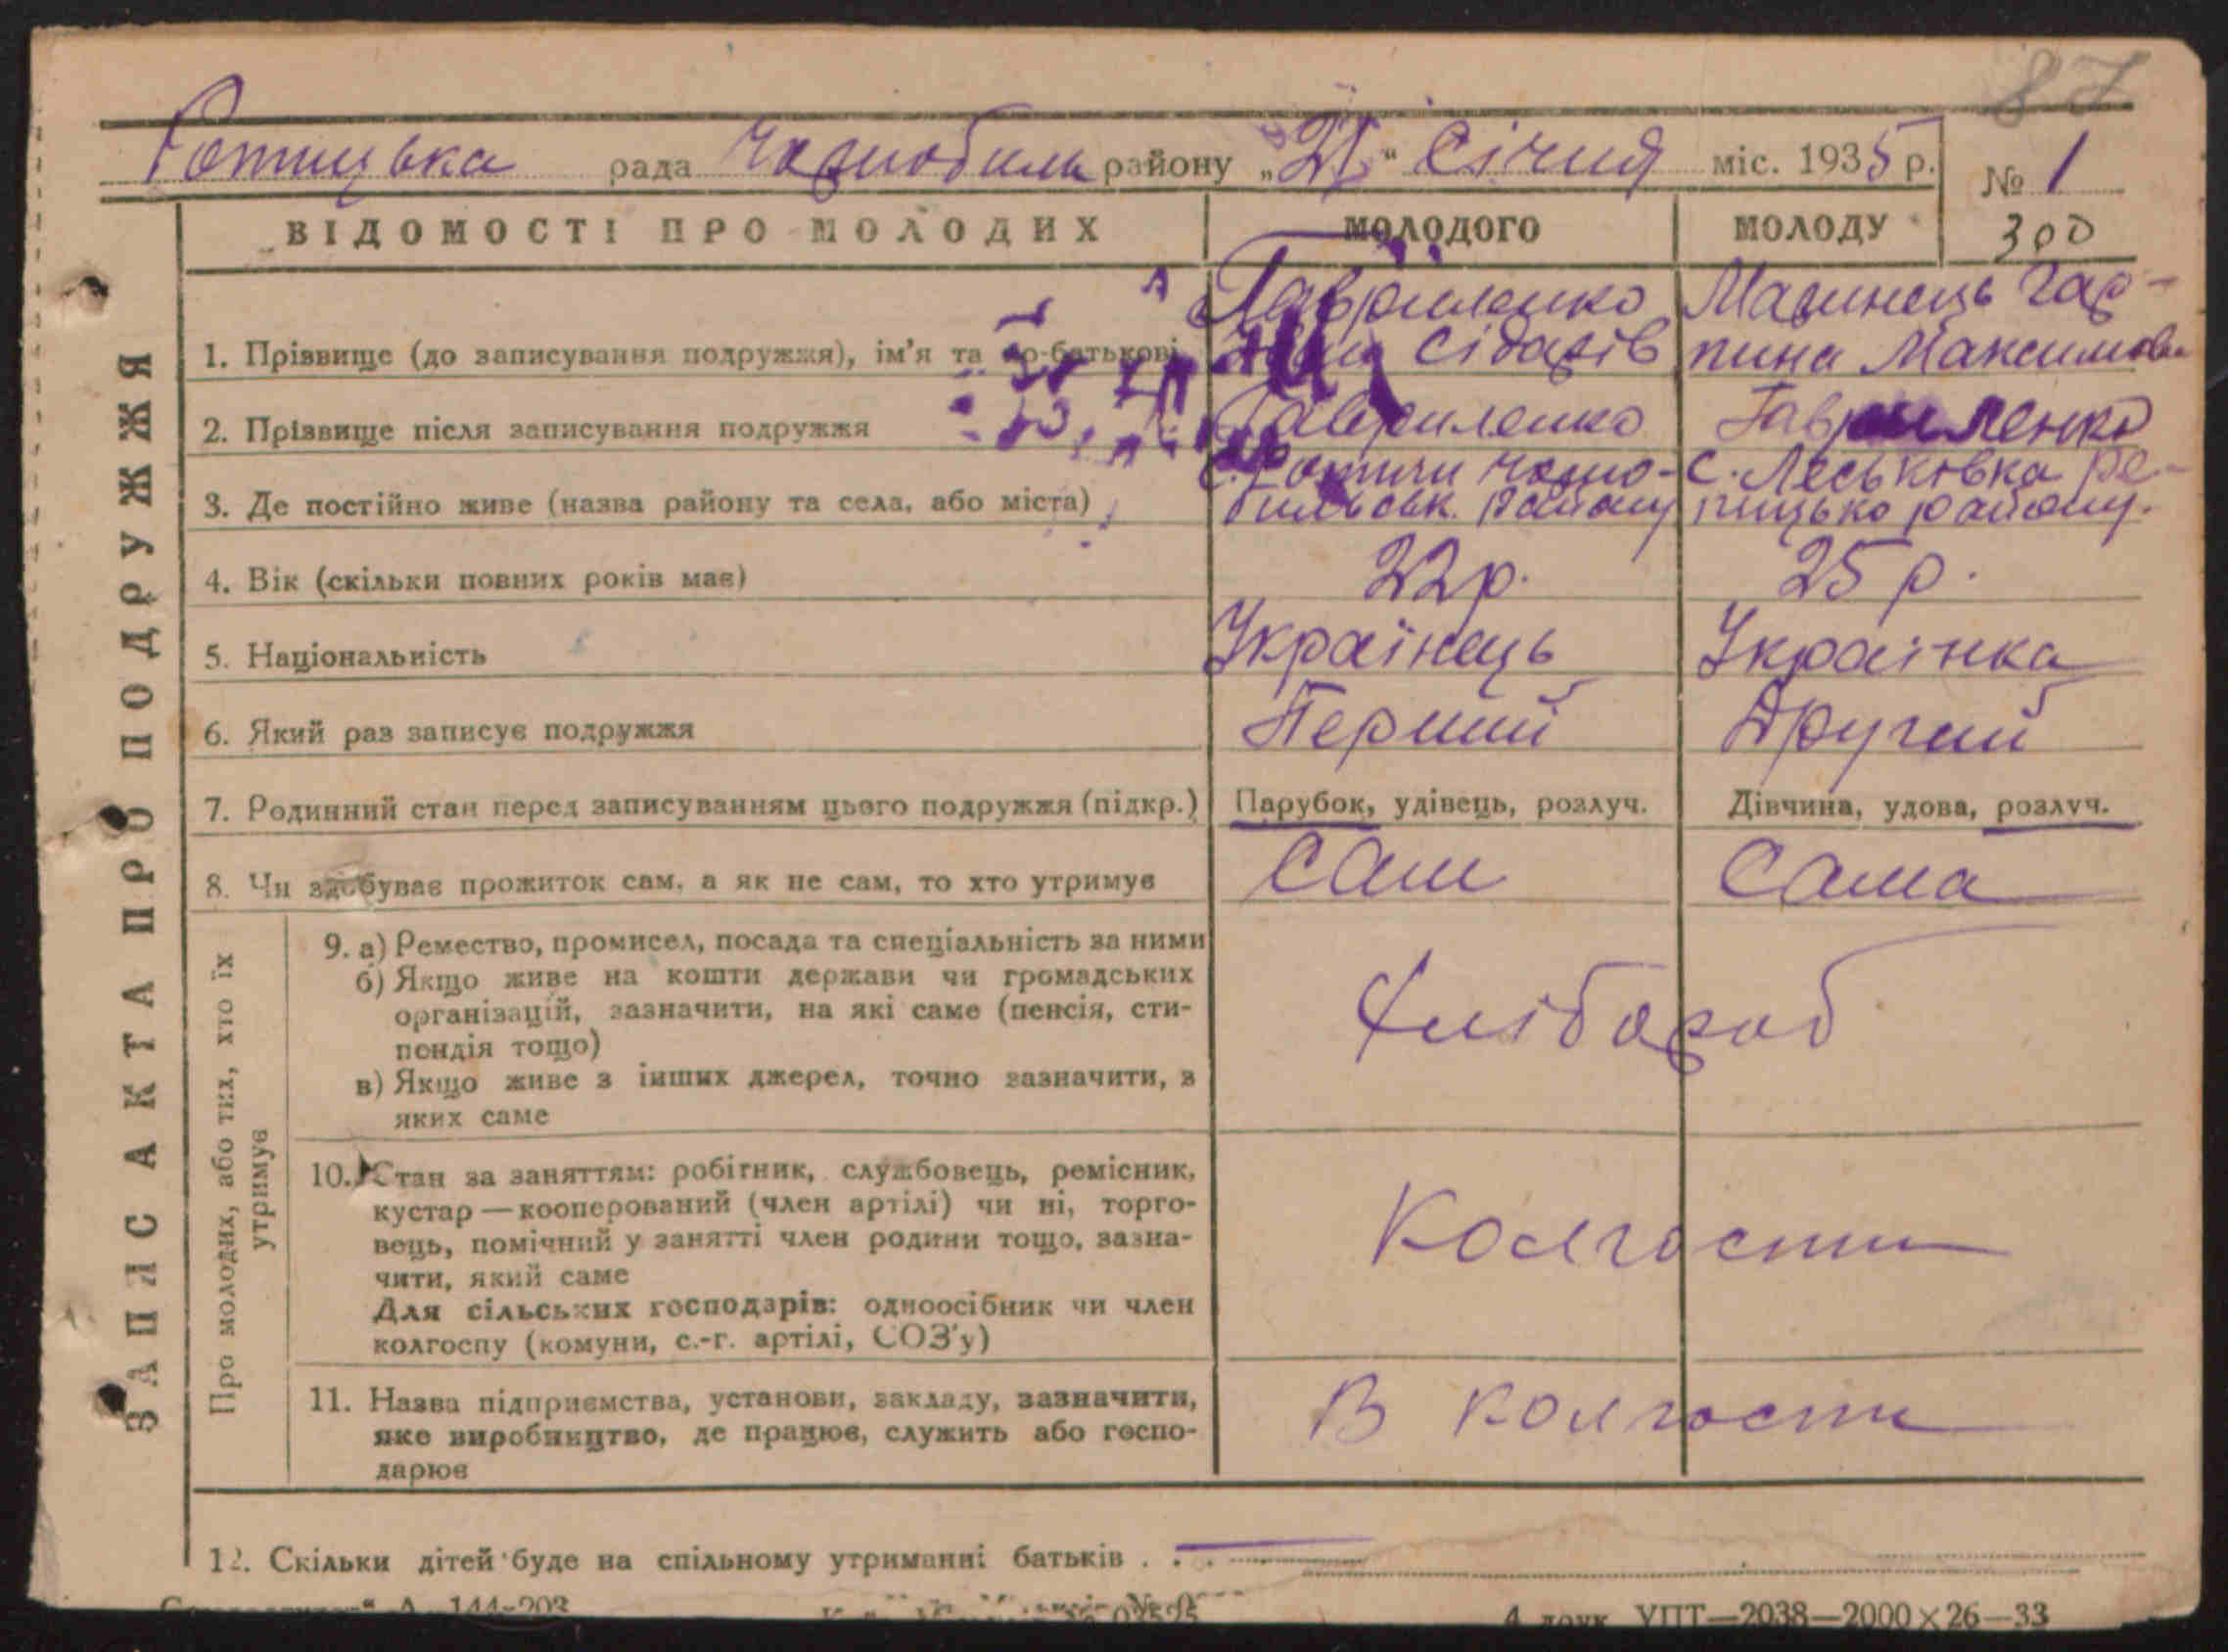 87
Ротицька рада Чорнобиль району „21“ Січня міс. 1935 р. № 1
ВІДОМОСТІ ПРО МОЛОДИХ МОЛОДОГО МОЛОДУ 300
Гавриленко Маринець Гар-
1. Прізвище (до записування подружжя), ім’я та по-батькові Сідорів пина Максимовна
2. Прізвище після записування подружжя Гавриленко Гавриленко
с. Ротичи Чорно- С. Леськовка Ре-
3. Де постійно живе (назва району та села, або міста) бильськ. Району пицько району.
4. Вік (скільки повних років має) 22 р. 25 р.
5. Національність Українець Українка
6. Який раз записує подружжя Перший Другий
7. Родинний стан перед записуванням цього подружжя (підкр.) Парубок, удівець, розлуч. Дівчина, удова, розлуч.
8. Чи здобуває прожиток сам, а як не сам, то хто утримує Сам Сама
ЗАПИС АКТА ПРО ПОДРУЖЖЯ
Про молодих, або тих, хто їх
утримує
9. а) Ремество, промисел, посада та спеціальність за ними
б) Якщо живе на кошти держави чи громадських
організацій, зазначити, на які саме (пенсія, сти-
пендія тощо)
в) Якщо живе з інших джерел, точно зазначити, з
яких саме
Хлібороб
10. Стан за заняттям: робітник, службовець, ремісник,
кустар — кооперований (член артілі) чи ні, торго-
вець, помічний у занятті член родини тощо, зазна-
чити, який саме
Для сільських господарів: одноосібник чи член
колгоспу (комуни, с.-г. артілі, СОЗ’у)
Колгоспи
11. Назва підприємства, установи, закладу, зазначити,
яке виробництво, де працює, служить або госпо-
дарює
В колгоспи
12. Скільки дітей буде на спільному утриманні батьків . . .
А—144-203 № 02525 4 друк. УПТ—2038—2000×26—33